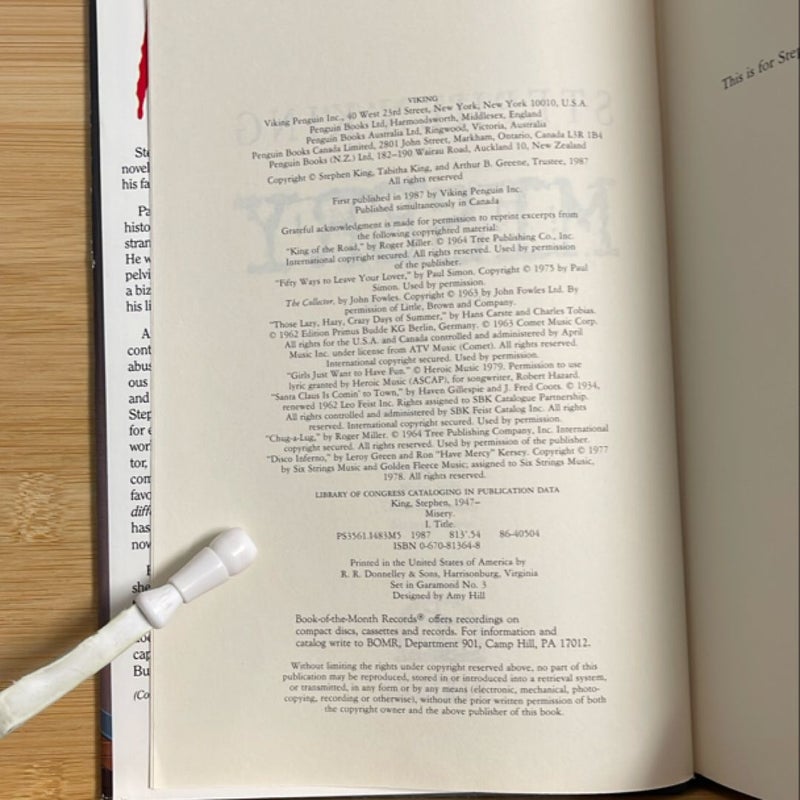 VIKING
Viking Penguin Inc., 40 West 23rd Street, New York, New York 10010, U.S.A.
Penguin Books Ltd, Harmondsworth, Middlesex, England
Penguin Books Australia Ltd, Ringwood, Victoria, Australia
Penguin Books Canada Limited, 2801 John Street, Markham, Ontario, Canada L3R 1B4
Penguin Books (N.Z.) Ltd, 182–190 Wairau Road, Auckland 10, New Zealand
Copyright © Stephen King, Tabitha King, and Arthur B. Greene, Trustee, 1987
All rights reserved
First published in 1987 by Viking Penguin Inc.
Published simultaneously in Canada
Grateful acknowledgment is made for permission to reprint excerpts from
the following copyrighted material:
"King of the Road," by Roger Miller. © 1964 Tree Publishing Co., Inc.
International copyright secured. All rights reserved. Used by permission
of the publisher.
"Fifty Ways to Leave Your Lover," by Paul Simon. Copyright © 1975 by Paul
Simon. Used by permission.
The Collector, by John Fowles. Copyright © 1963 by John Fowles Ltd. By
permission of Little, Brown and Company.
"Those Lazy, Hazy, Crazy Days of Summer," by Hans Carste and Charles Tobias.
© 1962 Edition Primus Budde KG Berlin, Germany. © 1963 Comet Music Corp.
All rights for the U.S.A. and Canada controlled and administered by April
Music Inc. under license from ATV Music (Comet). All rights reserved.
International copyright secured. Used by permission.
"Girls Just Want to Have Fun." © Heroic Music 1979. Permission to use
lyric granted by Heroic Music (ASCAP), for songwriter, Robert Hazard.
"Santa Claus Is Comin' to Town," by Haven Gillespie and J. Fred Coots. © 1934,
renewed 1962 Leo Feist Inc. Rights assigned to SBK Catalogue Partnership.
All rights controlled and administered by SBK Feist Catalog Inc. All rights
reserved. International copyright secured. Used by permission.
"Chug-a-Lug," by Roger Miller. © 1964 Tree Publishing Company, Inc. International
copyright secured. All rights reserved. Used by permission of the publisher.
"Disco Inferno," by Leroy Green and Ron "Have Mercy" Kersey. Copyright © 1977
by Six Strings Music and Golden Fleece Music; assigned to Six Strings Music,
1978. All rights reserved.
LIBRARY OF CONGRESS CATALOGING IN PUBLICATION DATA
King, Stephen, 1947–
Misery.
I. Title.
PS3561.I483M5 1987 813'.54 86-40504
ISBN 0-670-81364-8
Printed in the United States of America by
R. R. Donnelley & Sons, Harrisonburg, Virginia
Set in Garamond No. 3
Designed by Amy Hill
Book-of-the-Month Records® offers recordings on
compact discs, cassettes and records. For information and
catalog write to BOMR, Department 901, Camp Hill, PA 17012.
Without limiting the rights under copyright reserved above, no part of this
publication may be reproduced, stored in or introduced into a retrieval system,
or transmitted, in any form or by any means (electronic, mechanical, photo-
copying, recording or otherwise), without the prior written permission of both
the copyright owner and the above publisher of this book.
This is for Step